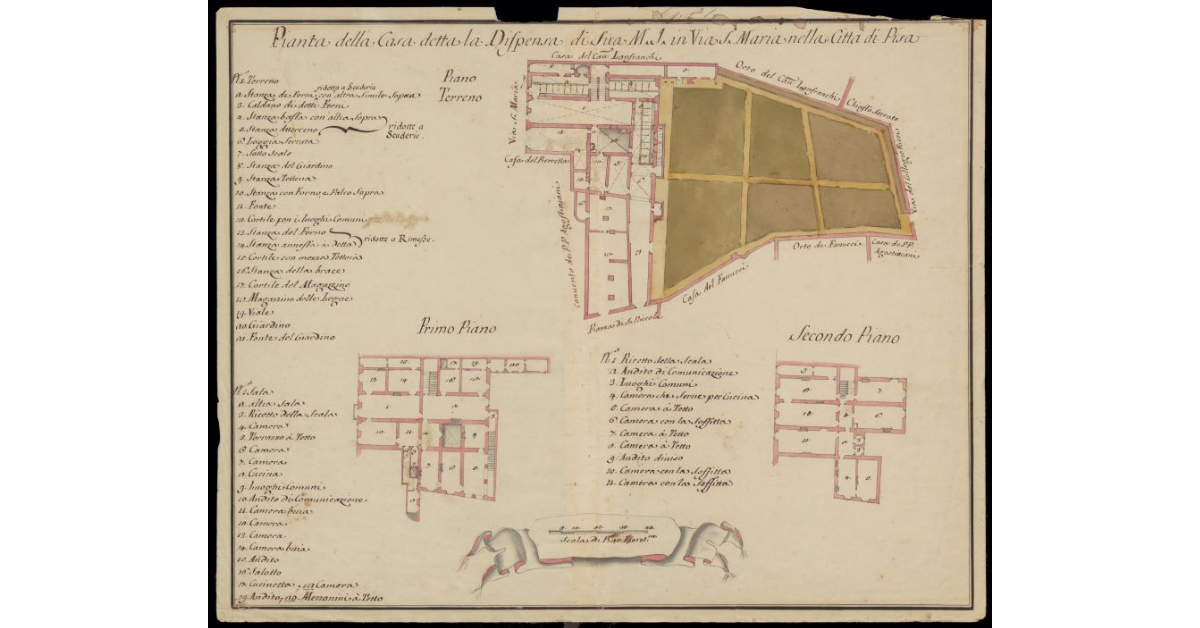 Pianta della Casa detta la Dispensa di Sua M. I. in Via S. Maria nella Città di Pisa
Piano
Terreno
Casa del Cav. Lanfranchi
Orto del Cav. Lanfranchi
Chiasso Serrato
Via S. Maria
Casa del Berretta
Convento de PP. Agostiniani
Piazza di S. Niccola
Casa del Fanucci
Orto de Fanucci
Casa de PP.
Agostiniani
Via del Collegio Ricci
N. 1. Terreno
2. Stanza de Forni, con altra simile Sopra
ridotto a Scuderia
3. Caldano di detti Forni
4. Stanza bassa con altra Sopra
5. Stanza Atterreno
ridotte a
Scuderie.
6. Loggia Serrata
7. Sotto Scala
8. Stanza del Giardino
9. Stanza Tettoia
10. Stanza con Forno, e Palco Sopra
11. Fonte
12. Cortile con i Luoghi Comuni
13. Stanza del Forno
14. Stanza annessa à detta
ridotte a Rimesse.
15. Cortile con mezza Tettoia
16. Stanza della brace
17. Cortile del Magazzino
18. Magazzino delle legne
19. Viale
20. Giardino
21. Fonte del Giardino
Primo Piano
N. 1 Sala
2. altra Sala
3. Ricetto della Scala
4. Camera
5. Terrazzo à Tetto
6. Camera
7. Camera
8. Cucina
9. Luoghi Comuni
10. Andito di Comunicazione
11. Camera buia
12. Camera
13. Camera
14. Camera buia
15. Andito
16. Salotto
17. Cucinetta, 18 Camera
19. Andito, 20. Mezzanini à Tetto
Secondo Piano
N. 1 Ricetto della Scala
2. Andito di Comunicazione
3. Luoghi Comuni
4. Camera che Serve per Cucina
5. Camera à Tetto
6. Camera con la Soffitta
7. Camera à Tetto
8. Camera à Tetto
9. Andito diviso
10. Camera con la Soffitta
11. Camera con la Soffitta
Scala di B.a Fioret.ne